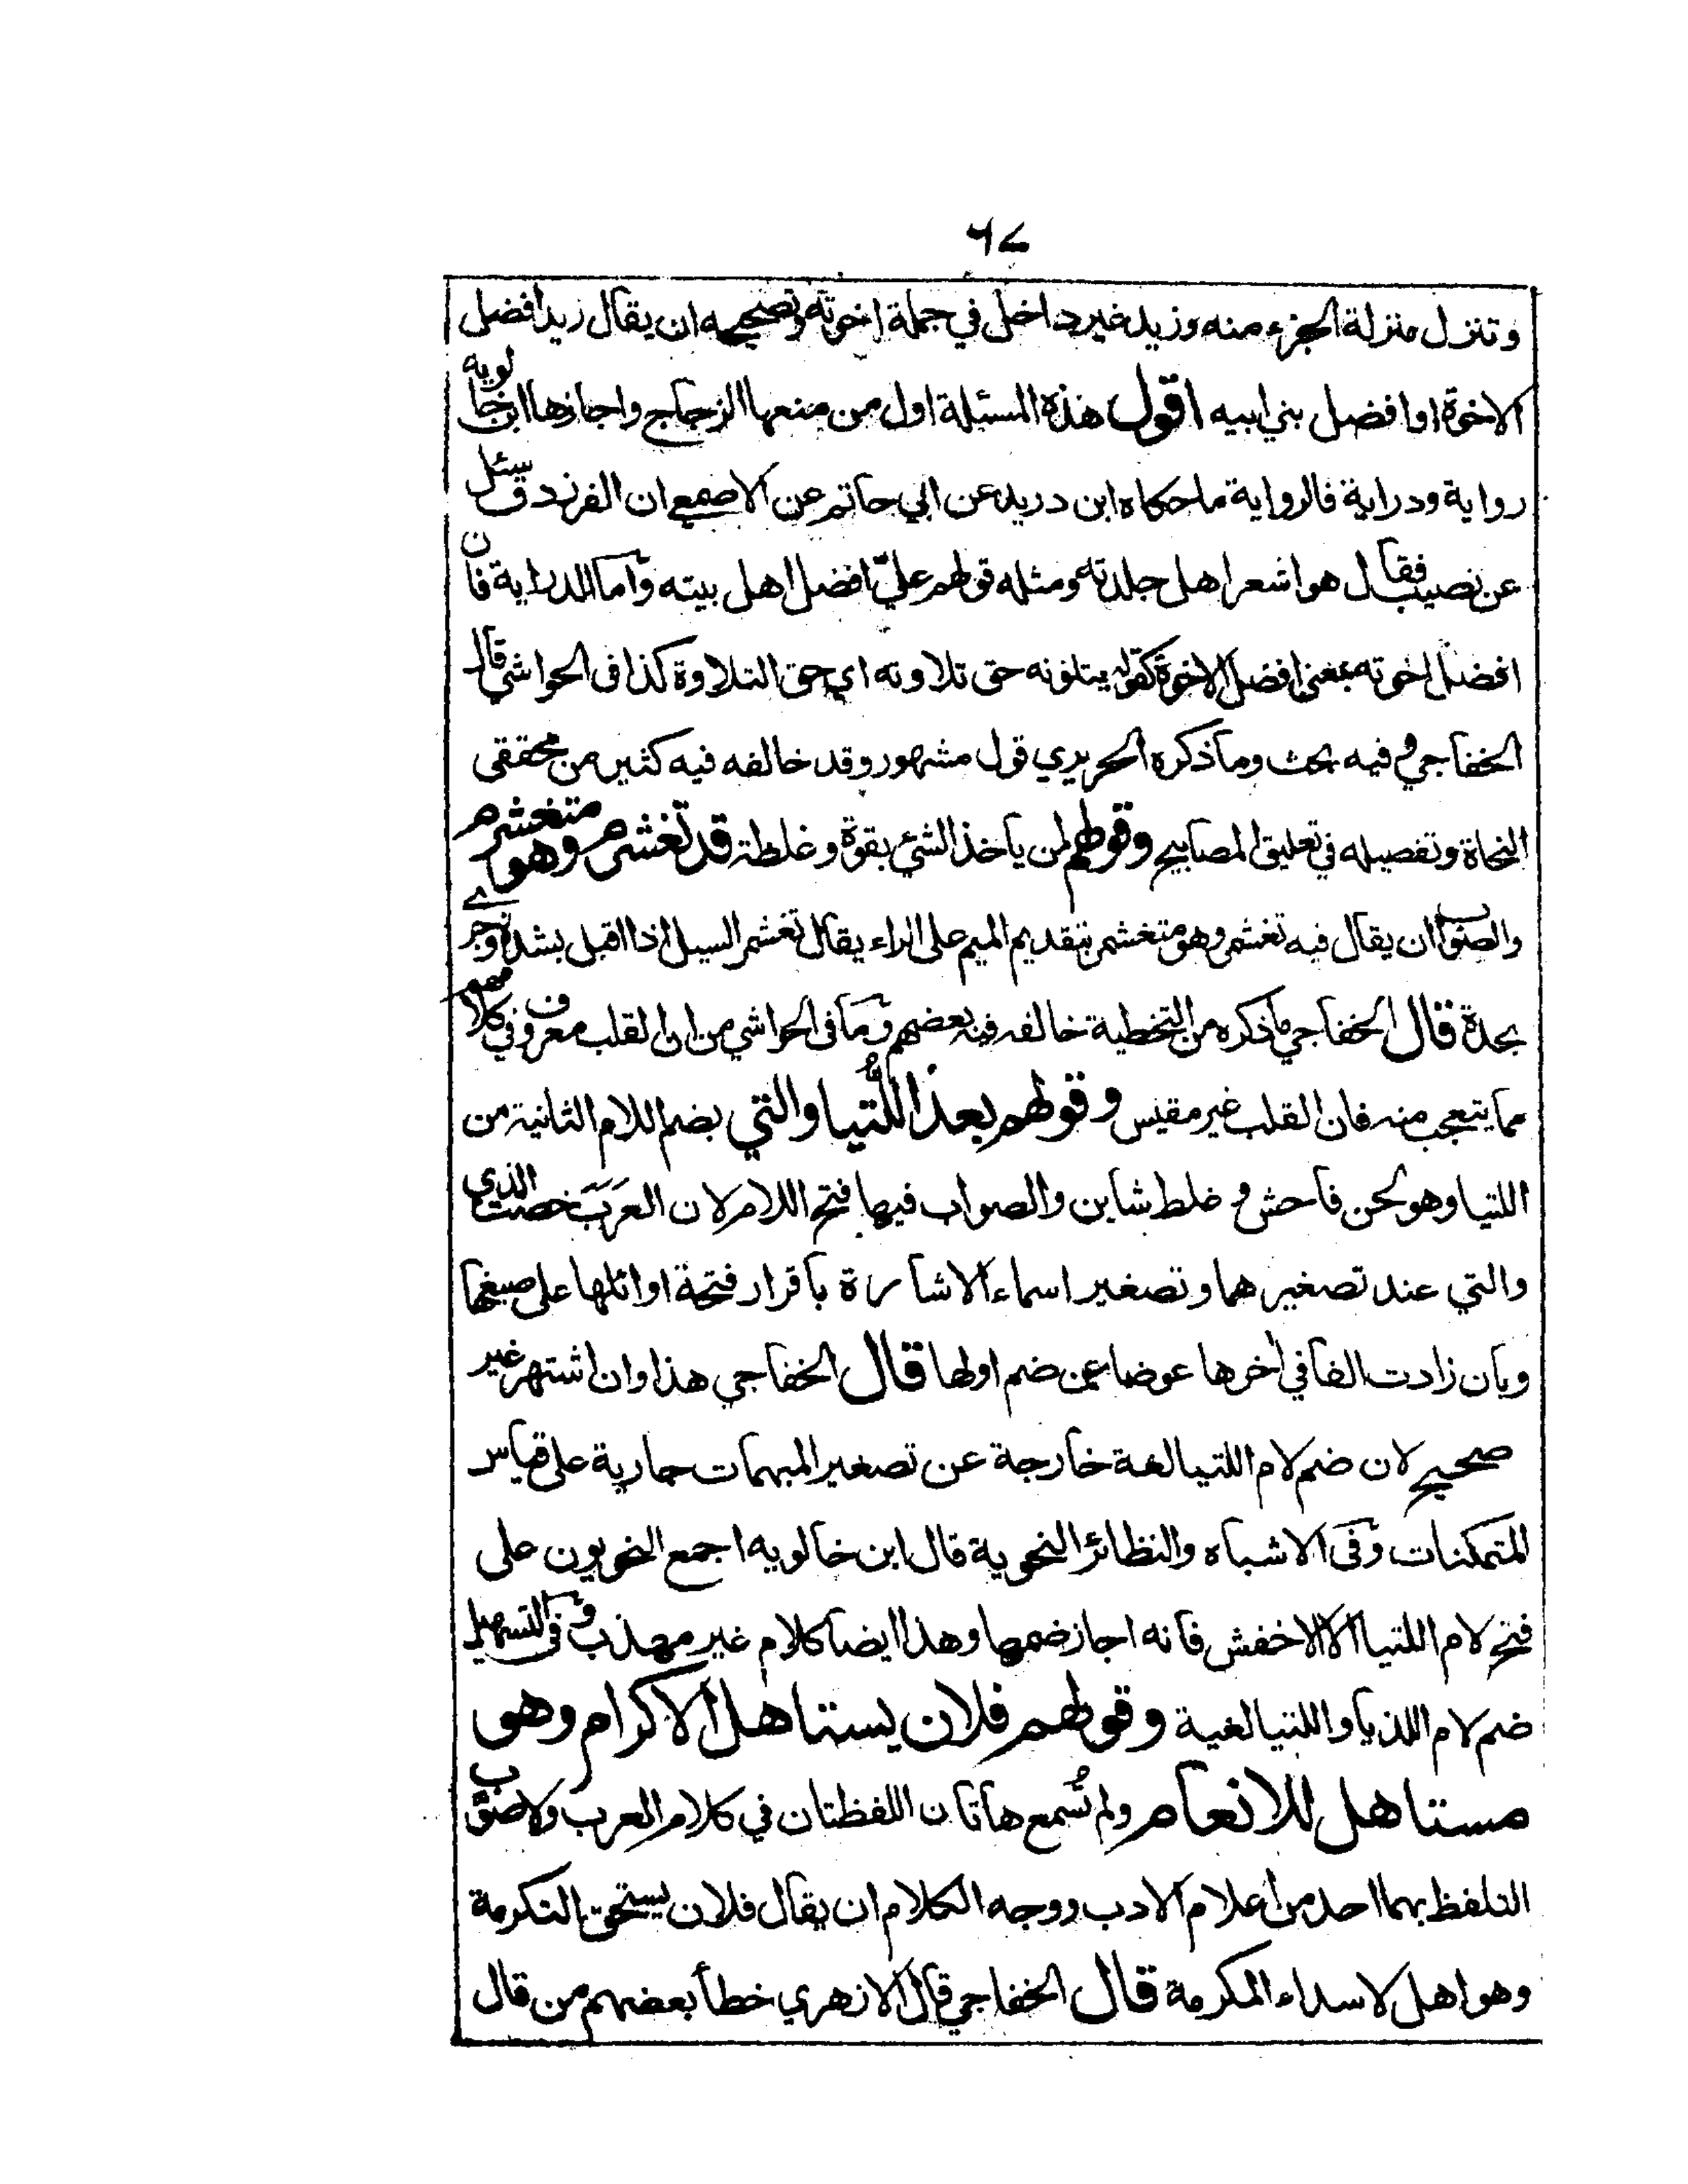 ٦٧
وتنزل منزلة الجزء منه وزيد غير داخل في جملة اخوته وتصحيحه ان يقال زيد افضل
الاخوة او افضل بني ابيه اقول هذه المسئلة اول من منعها الزجاج واجازها ابن خالويه
رواية ودراية فالرواية ما حكاه ابن دريد عن ابي حاتم عن الاصمعي ان الفرزدق سئل
عن نصيب فقال هو اشعر اهل جلدته ومثله قولهم علي افضل اهل بيته واما الدراية فان
افضل اخوته بمعنى افضل الاخوة كقوله يتلونه حق تلاوته اي حق التلاوة كذا في الحواشي قال
الخفاجي وفيه بحث وما ذكره الحريري قول مشهور وقد خالفه فيه كثير من محققي
النحاة وتفصيله في تعليق المصابيح وقولهم لمن ياخذ الشئ بقوة وغلظة قد تغشرم وهو متغشرم
والصواب ان يقال فيه تغشمر وهو متغشمر بتقديم الميم على الراء يقال تغشمر السيل اذا اقبل بشدة وجرے
بحدة قال الخفاجي ما ذكره من التخطية خالفه فيه بعضهم وما في الحواشي من ان القلب معروف في كلامهم
مما يتعجب منه فان القلب غير مقيس وقولهم بعد اللُّتيا والتي بضم اللام الثانية من
اللتيا وهو لحن فاحش و غلط شاين والصواب فيها فتح اللام لان العرب خصت الذي
والتي عند تصغيرهما وتصغير اسماء الاشارة باقرار فتحة اوائلها على صيغها
وبان زادت الفا في اخرها عوضا عن ضم اولها قال الخفاجي هذا وان اشتهر غير
صحيح لان ضم لام اللتيا لغة خارجة عن تصغير المبهمات جارية على قياس
المتمكنات وفي الاشباه والنظائر النحوية قال ابن خالويه اجمع النحويون على
فتح لام اللتيا الا الاخفش فانه اجاز ضمها وهذا ايضا كلام غير مهذب وفي التسهيل
ضم لام اللذيا واللتيا لغية وقولهم فلان يستاهل الاكرام وهو
مستاهل للانعام ولم تُسمع هاتان اللفظتان في كلام العرب ولا صوّب
التلفظ بهما احد من اعلام الادب ووجه الكلام ان يقال فلان يستحق التكرمة
وهو اهل لاسداء المكرمة قال الخفاجي قال الازهري خطأ بعضهم من قال